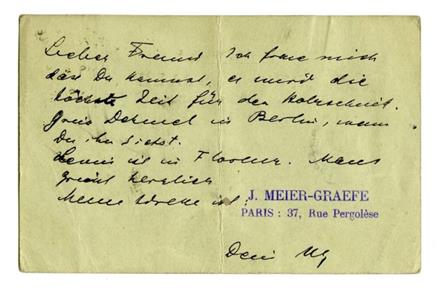 Lieber Freund Ich freue mich
dass Du kommst, es wird die
höchste Zeit für den Holzschnitt.
Dehmel in Berlin, wenn
Du ihn siehst.
ist in Florenz.
grüsst herzlich
Meine Adresse ist:
J. MEIER-GRAEFE
PARIS : 37, Rue Pergolèse
Dein